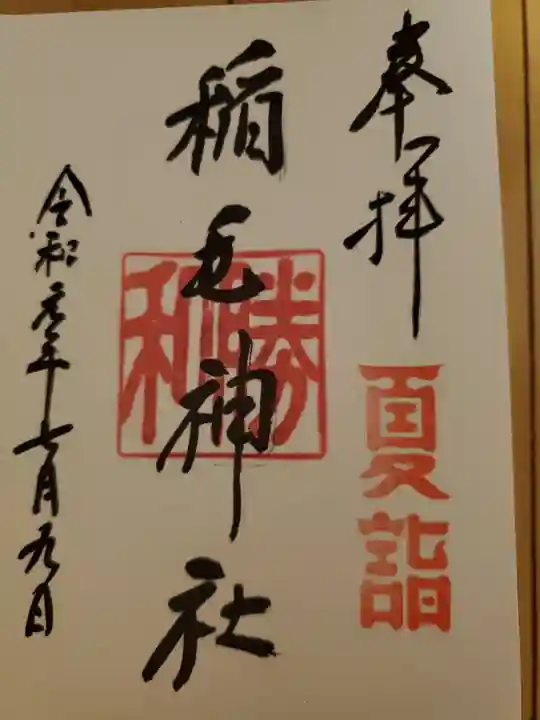 奉拝
夏詣
稲毛神社
勝和
令和元年七月九日